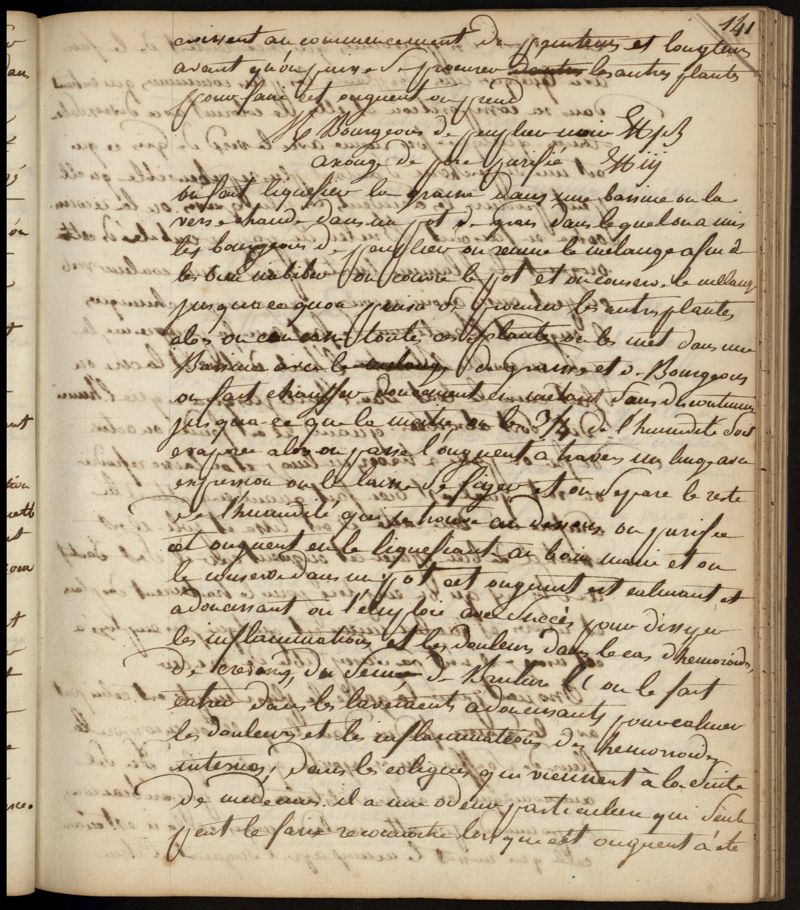 141
croissent au commencement du printems et longtems
avant qu'on puisse se procurer les autres plants
pour faire cet onguent on prend
Bourgeons de peuplier noir
axonge de porc purifié
on fait liquefier la graisse dans une bassine on la
verse chaude dans un pot de grais dans lequel on a mis
les bourgeons de peuplier on remue le mélange afin de
les bien imbiber on couvre le pot et on conserve le mélange
jusqu'a ce qu'on puisse se procurer les autres plantes
alors on concasse toute ces plantes on les met dans une
Bassine avec le melange de graisse et de Bourgeons
on fait chauffer doucement en remuant sans discontinuer
jusqu'a ce que la moitié ou les 3/4 de l'humidité soit
evaporée alors on passe l'onguent à travers un linge avec
expression on le laisse se figer et on separe le reste
de l'humidité qui se trouve au dessous on purifie
cet onguent en le liquefiant au bain marie et on
le conserve dans un pot cet onguent est calmant et
adoucissant on l'emploie avec succès pour dissiper
les inflammations et les douleurs dans le cas d'hemoroides,
de cresons du sein de Brulure &c on le fait
entrer dans les lavements adoucissants pour calmer
les douleurs et les inflammations des hemorroides
internes, dans les coliques qui viennent à la suite
de medecines. il a une odeur particuliere qui seule
peut le faire reconnoitre lorsque cet onguent à été